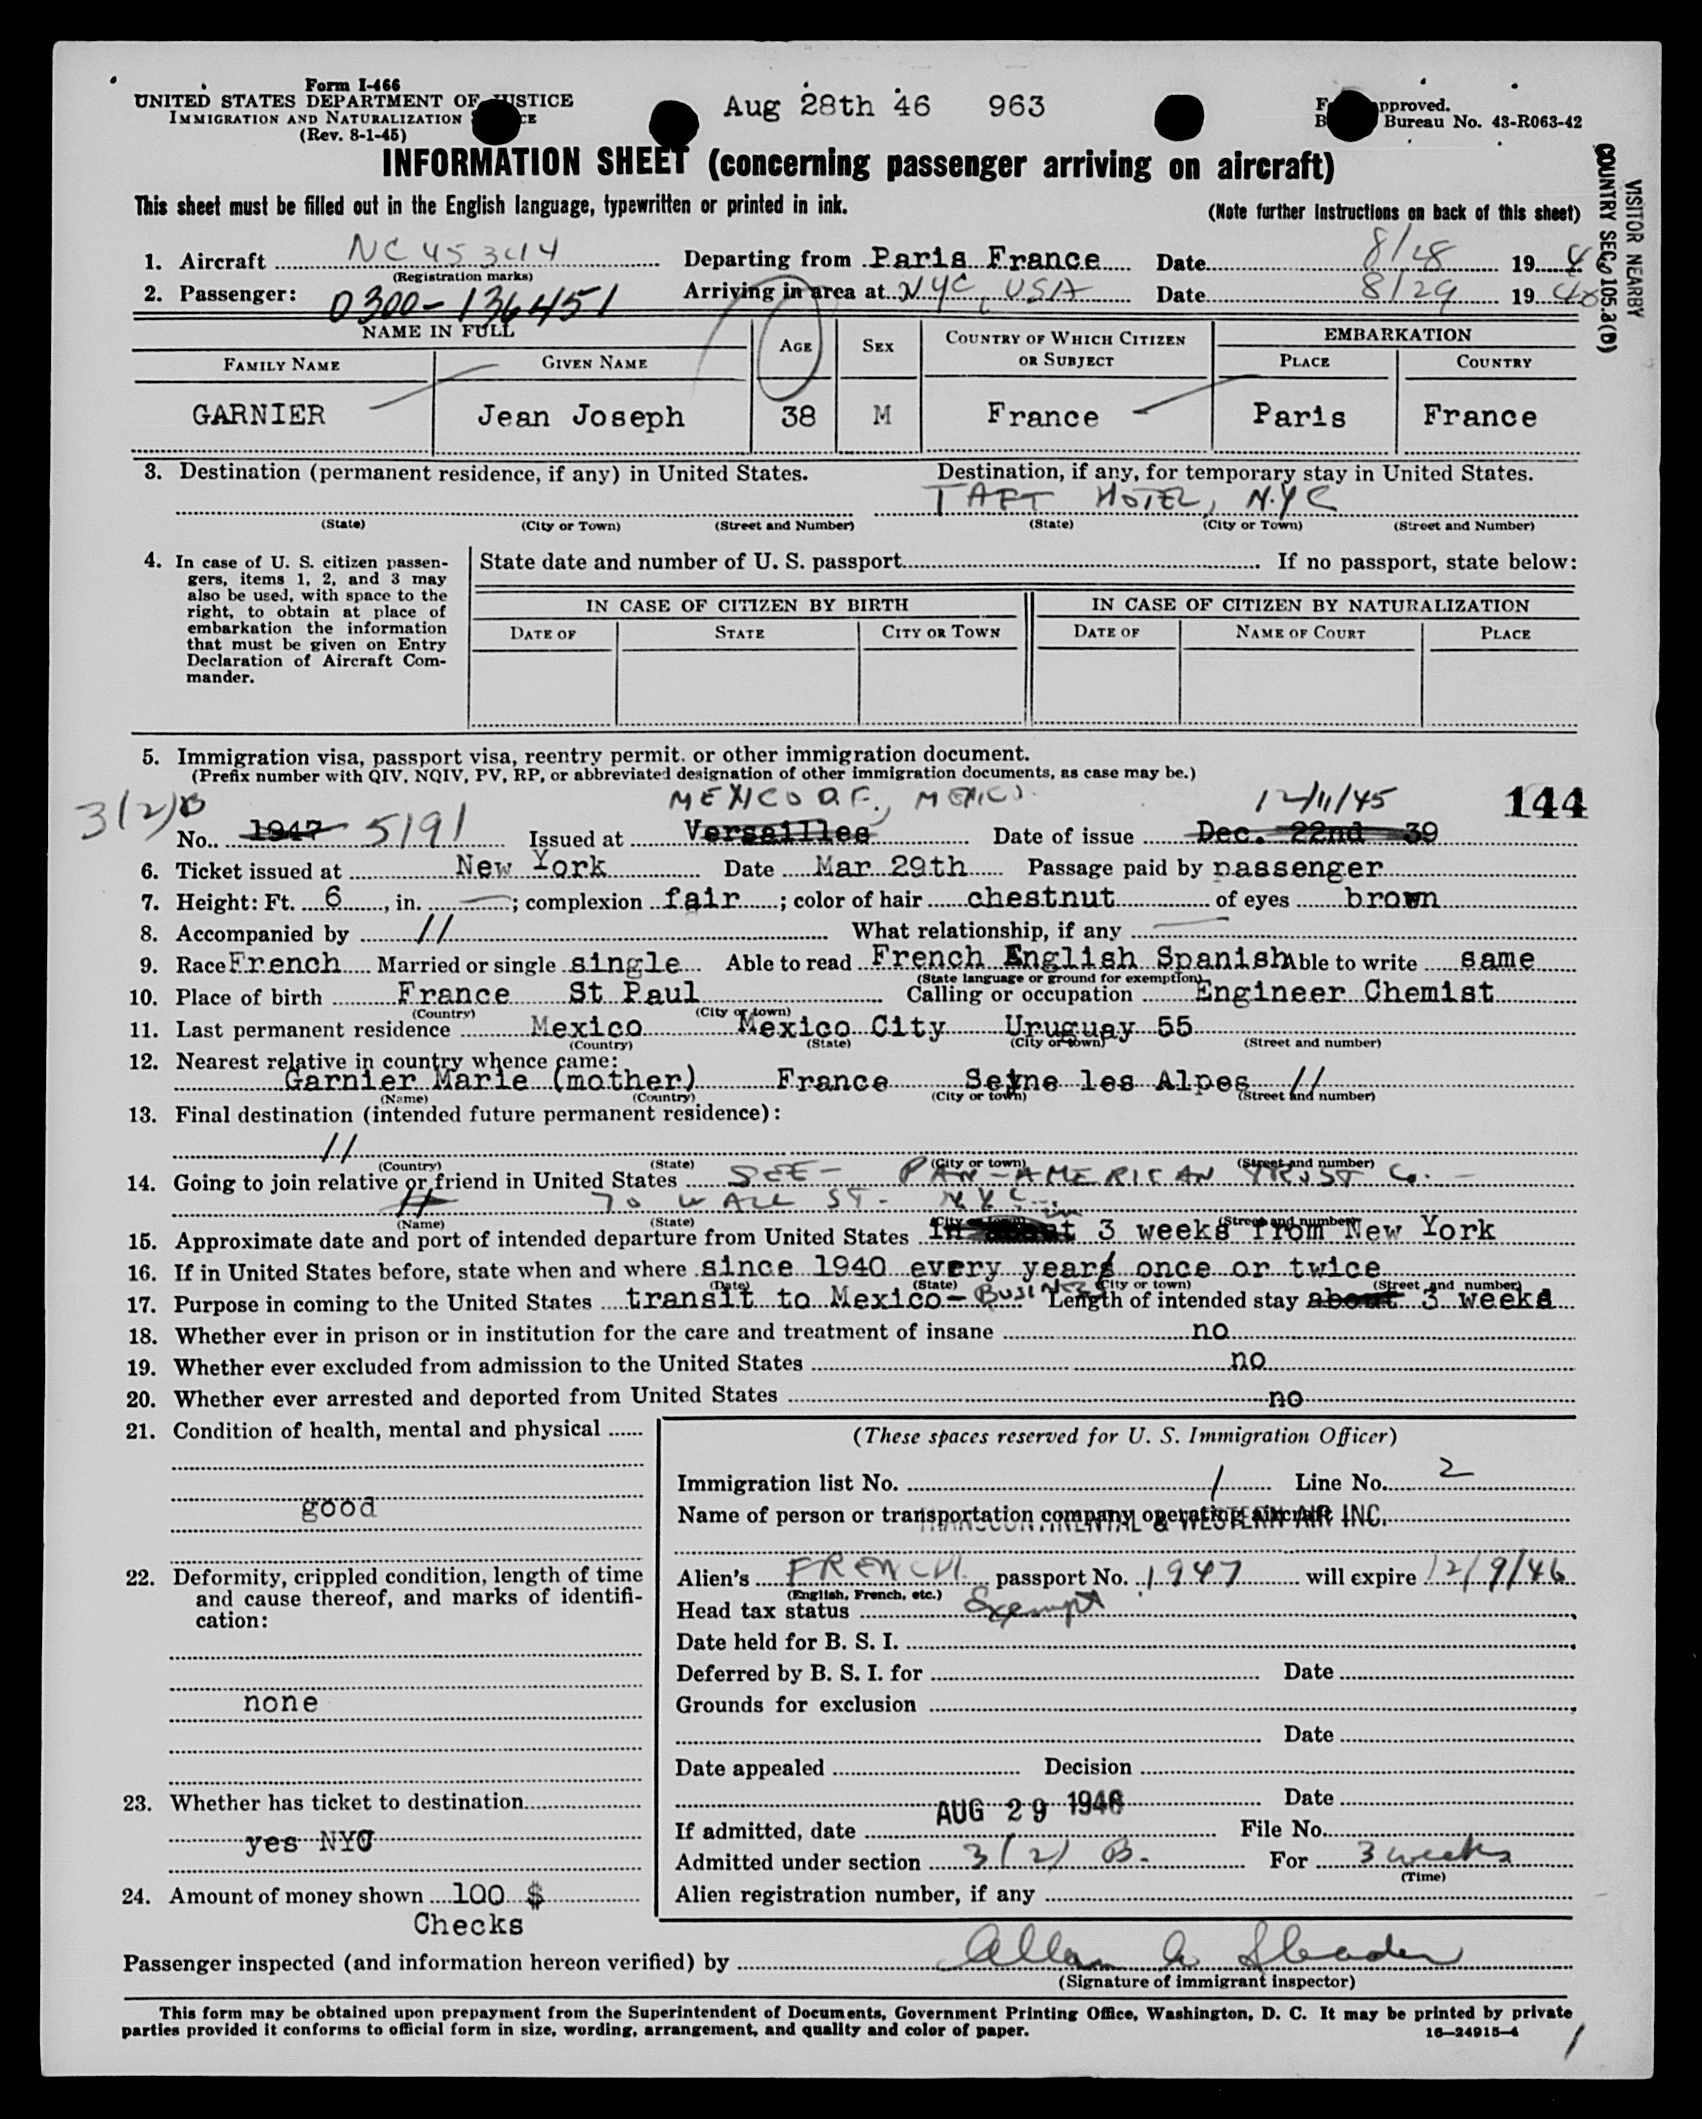 Form I-466
UNITED STATES DEPARTMENT OF JUSTICE
IMMIGRATION AND NATURALIZATION
(Rev. 8-1-45)
Aug 28th 46 963
pproved.
Bureau No. 43-R063-42
INFORMATION SHEET (concerning passenger arriving on aircraft)
This sheet must be filled out in the English language, typewritten or printed in ink.
(Note further instructions on back of this sheet)
VISITOR NEARBY
COUNTRY SEC. 105.3(D)
1. Aircraft NC 45344 Departing from Paris France Date 8/28 19 4
(Registration marks)
2. Passenger: 0300-136451 Arriving in area at NYC, USA Date 8/29 19 46
NAME IN FULL AGE SEX COUNTRY OF WHICH CITIZEN OR SUBJECT EMBARKATION
FAMILY NAME GIVEN NAME PLACE COUNTRY
GARNIER Jean Joseph 38 M France Paris France
3. Destination (permanent residence, if any) in United States. Destination, if any, for temporary stay in United States.
TAFT HOTEL, N.Y.C
(State) (City or Town) (Street and Number) (State) (City or Town) (Street and Number)
4. In case of U. S. citizen passen-
gers, items 1, 2, and 3 may
also be used, with space to the
right, to obtain at place of
embarkation the information
that must be given on Entry
Declaration of Aircraft Com-
mander.
State date and number of U. S. passport If no passport, state below:
IN CASE OF CITIZEN BY BIRTH IN CASE OF CITIZEN BY NATURALIZATION
DATE OF STATE CITY OR TOWN DATE OF NAME OF COURT PLACE
5. Immigration visa, passport visa, reentry permit, or other immigration document.
(Prefix number with QIV, NQIV, PV, RP, or abbreviated designation of other immigration documents, as case may be.)
3(2)B MEXICO D.F., MEXICO 12/11/45 144
No. 1947 5191 Issued at Versailles Date of issue Dec. 22nd 39
6. Ticket issued at New York Date Mar 29th Passage paid by passenger
7. Height: Ft. 6, in. —; complexion fair; color of hair chestnut of eyes brown
8. Accompanied by // What relationship, if any —
9. Race French Married or single single Able to read French English Spanish Able to write same
(State language or ground for exemption)
10. Place of birth France St Paul Calling or occupation Engineer Chemist
(Country) (City or town)
11. Last permanent residence Mexico Mexico City Uruguay 55
(Country) (State) (City or town) (Street and number)
12. Nearest relative in country whence came:
Garnier Marie (mother) France Seyne les Alpes //
(Name) (Country) (City or town) (Street and number)
13. Final destination (intended future permanent residence):
//
(Country) (State) (City or town) (Street and number)
14. Going to join relative or friend in United States SEE - PAN-AMERICAN TRUST Co. -
// 70 WALL ST. N.Y.C.
(Name) (State) (City or town) (Street and number)
15. Approximate date and port of intended departure from United States In about in 3 weeks from New York
16. If in United States before, state when and where since 1940 every years once or twice
(Date) (State) (City or town) (Street and number)
17. Purpose in coming to the United States transit to Mexico - BUSINESS Length of intended stay about 3 weeks
18. Whether ever in prison or in institution for the care and treatment of insane no
19. Whether ever excluded from admission to the United States no
20. Whether ever arrested and deported from United States no
21. Condition of health, mental and physical
good
22. Deformity, crippled condition, length of time
and cause thereof, and marks of identifi-
cation:
none
23. Whether has ticket to destination
yes NYC
24. Amount of money shown 100 $
Checks
(These spaces reserved for U. S. Immigration Officer)
Immigration list No. 1 Line No. 2
Name of person or transportation company operating aircraft TRANSCONTINENTAL & WESTERN AIR INC.
Alien's FRENCH passport No. 1947 will expire 12/9/46
(English, French, etc.)
Head tax status Exempt
Date held for B. S. I.
Deferred by B. S. I. for Date
Grounds for exclusion
Date
Date appealed Decision
Date
If admitted, date AUG 29 1946 File No.
Admitted under section 3(2) B. For 3 weeks
(Time)
Alien registration number, if any
Passenger inspected (and information hereon verified) by
(Signature of immigrant inspector)
This form may be obtained upon prepayment from the Superintendent of Documents, Government Printing Office, Washington, D. C. It may be printed by private
parties provided it conforms to official form in size, wording, arrangement, and quality and color of paper.
16—24915-4
1